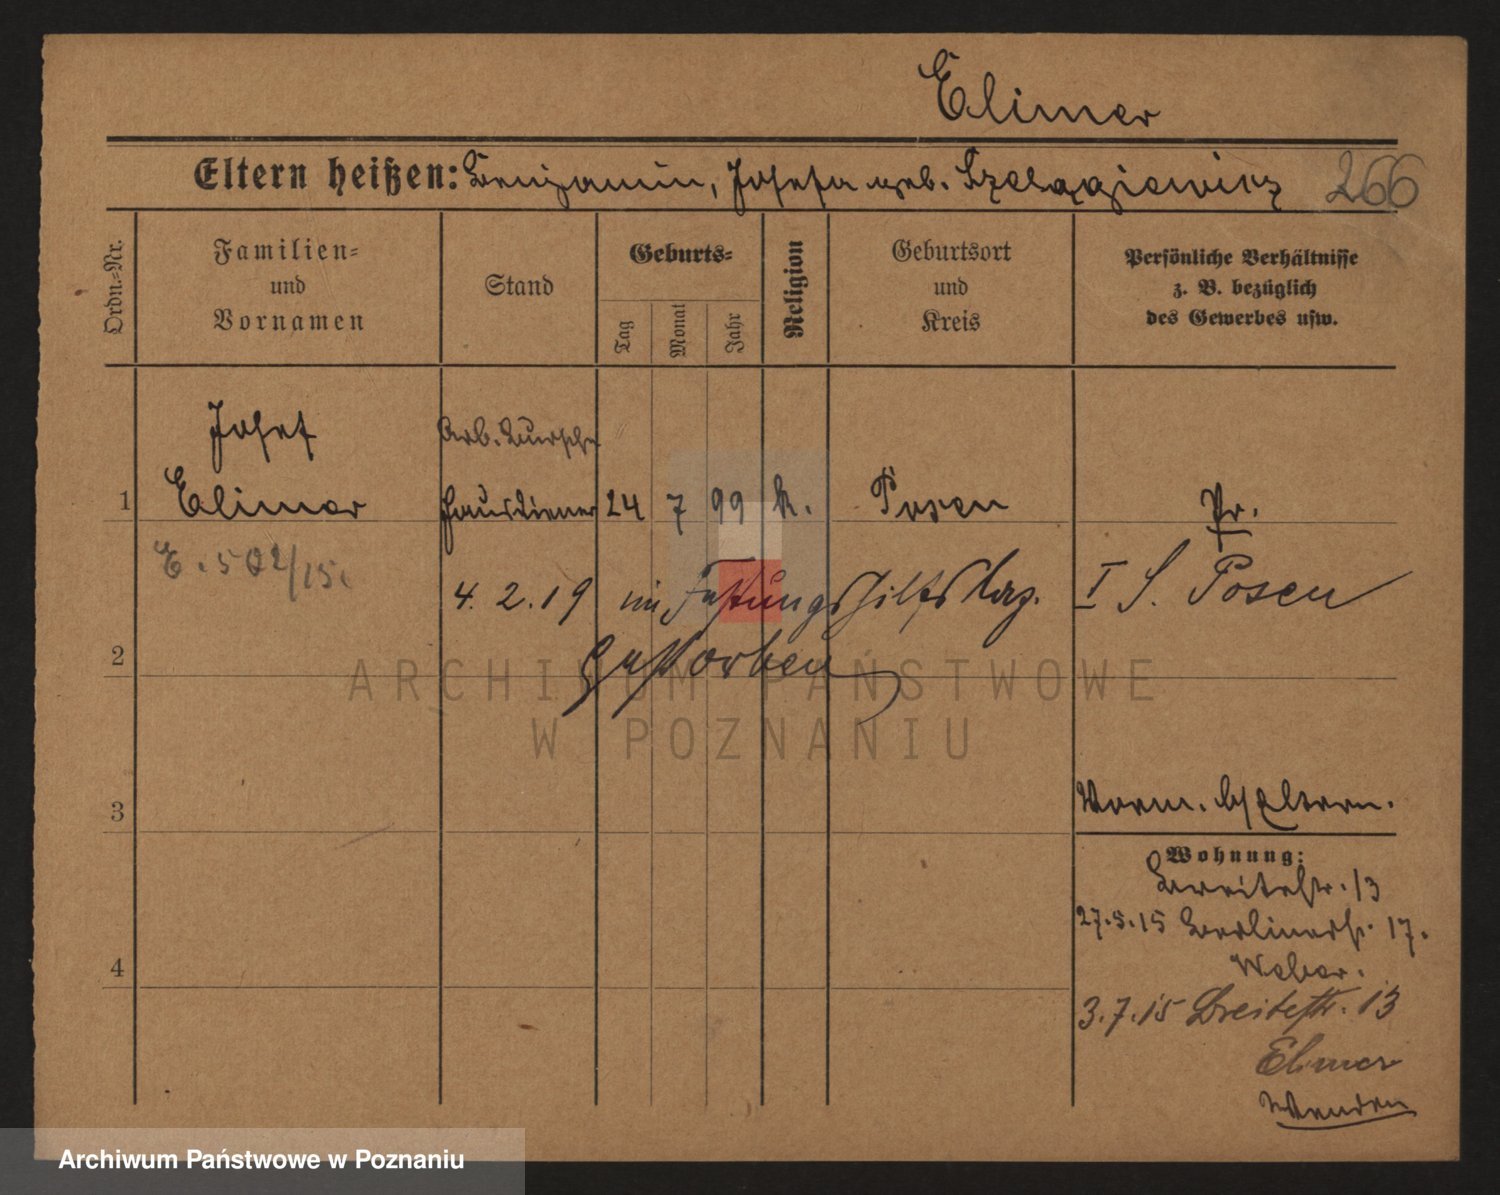 Elimer
Eltern heißen: Benjamin, Josefa geb. Szelagiewicz 266
Ordn.-Nr.
Familien-
und
Vornamen
Stand
Geburts-
Tag
Monat
Jahr
Religion
Geburtsort
und
Kreis
Persönliche Verhältnisse
z. B. bezüglich
des Gewerbes usw.
Josef Arb. Bursche
1 Elimer Hausdiener 24 7 99 k. Posen Pr.
E. 502/15.
4. 2. 19 im Festungshilfslaz. I S. Posen
2 gestorben
ARCHIWUM PAŃSTWOWE
W POZNANIU
3 Vorm. b/Eltern.
Wohnung:
Breitestr. 13
27.5.15 Berlinerstr. 17.
4 Weber.
3.7.15 Breitestr. 13
Elimer
Wenden
Archiwum Państwowe w Poznaniu